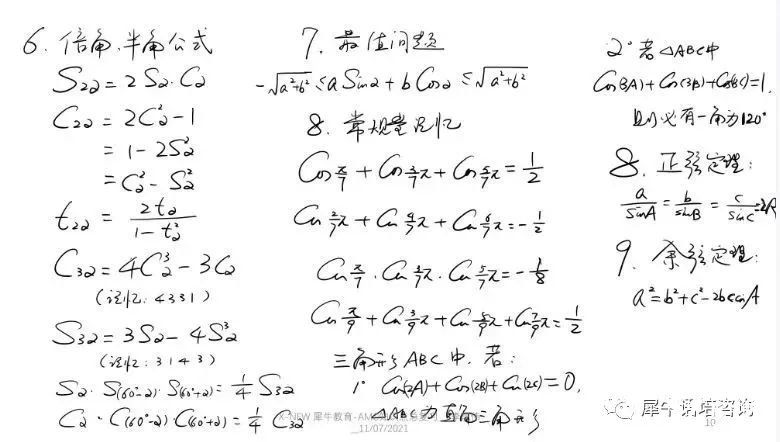 6. 倍角.半角公式
S₂α = 2Sα·Cα
C₂α = 2C²α − 1
= 1 − 2S²α
= C²α − S²α
t₂α = 2tα/(1 − t²α)
C₃α = 4C³α − 3Cα
(记忆: 4331)
S₃α = 3Sα − 4S³α
(记忆: 3143)
Sα·S(60°−α)·S(60°+α) = 1/4 S₃α
Cα·C(60°−α)·C(60°+α) = 1/4 C₃α
7. 最值问题
−√(a²+b²) ≤ a Sinα + b Cosα ≤ √(a²+b²)
8. 常规量记忆
Cos π/7 + Cos 3/7π + Cos 5/7π = 1/2
Cos 2/7π + Cos 4/7π + Cos 6/7π = −1/2
Cos π/7 · Cos 3/7π · Cos 5/7π = −1/8
Cos π/9 + Cos 3/9π + Cos 5/9π + Cos 7/9π = 1/2
三角形ABC中, 若:
1° Cos(2A) + Cos(2B) + Cos(2C) = 0,
△ABC为直角三角形
2° 若△ABC中
Cos(3A) + Cos(3B) + Cos(3C) = 1,
则必有一角为120°
8. 正弦定理:
a/sinA = b/sinB = c/sinC = 2R
9. 余弦定理:
a² = b² + c² − 2bccosA
X-NEW 犀牛教育
_11/07/2021
10
犀牛 培咨询